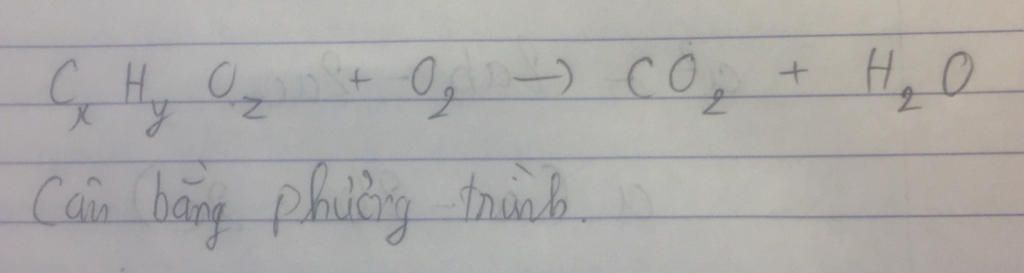 CxHyOz + O2 → CO2 + H2O
Cân bằng phương trình.